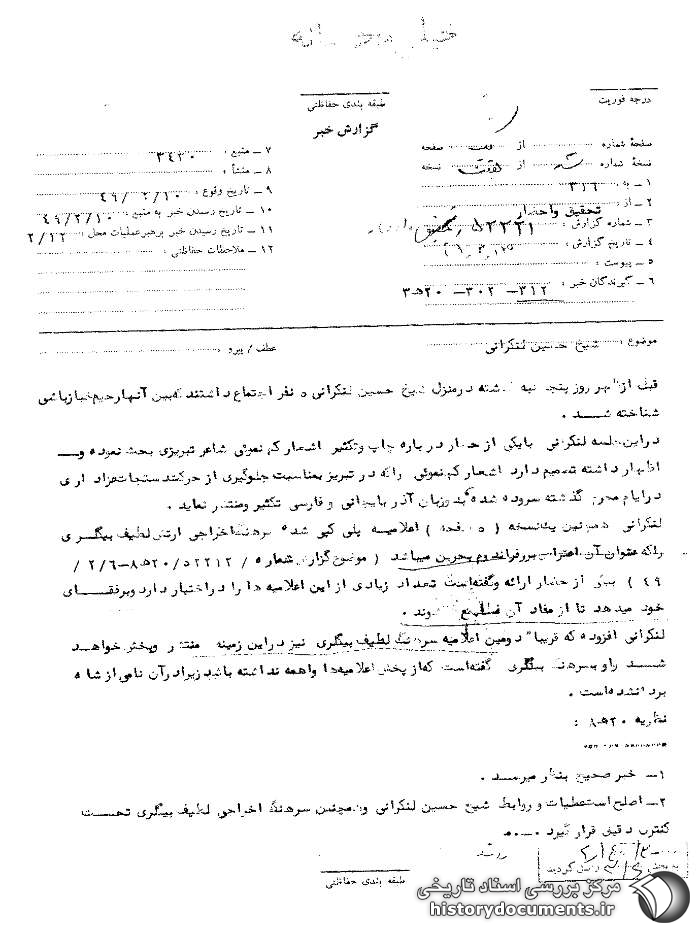 خیلی محرمانه
طبقه بندی حفاظتی
درجه فوریت
گزارش خبر
صفحهٔ شماره از صفحه
نسخهٔ شماره از نسخه
۱ـ به : ۳۱۶
۲ـ از :
تحقیق واحضار
۳ـ شماره گزارش : ۵۲۲۳۱
۴ـ تاریخ گزارش :
۵ـ پیوست :
۶ـ گیرندگان خبر : ۳۱۲ – ۳۰۲ – ۲۰ه۳
۷ـ منبع : ۳۴۳۰
۸ـ منشأ :
۹ـ تاریخ وقوع : ۴۹/۲/۱۰
۱۰ـ تاریخ رسیدن خبر به منبع : ۴۹/۲/۱۰
۱۱ـ تاریخ رسیدن خبر برهبرعملیات محل : ۲/۱۲
۱۲ـ ملاحظات حفاظتی :
موضوع : شیخ حسین لنکرانی
عطف / پیرو :
قبل ازظهر روز پنجشنبه گذشته درمنزل شیخ حسین لنکرانی ۵ نفر اجتماع داشتند که بین آنها رحیم خبازباشی
شناخته شد .
دراین جلسه لنکرانی بایکی از حضار درباره چاپ وتکثیر اشعار کریم نعوئی شاعر تبریزی بحث نموده و
اظهار داشته تصمیم دارد اشعار کریم نعوئی راکه در تبریز بمناسبت جلوگیری از حرکت دستجات عزاداری
درایام محرم گذشته سروده شده به دوزبان آذربایجانی و فارسی تکثیر ومنتشر نماید .
لنکرانی همچنین یک نسخه ( ۵ صفحه ) اعلامیه پلی کپی شده سرهنگ اخراجی ارتش لطیف بیگلری
راکه عنوان آن اعتراض بررفراندوم بحرین میباشد ( موضوع گزارش شماره ۵۲۲۱۲/۲۰ه۸–۲/۶/
۴۹ ) بیکی از حضار ارائه وگفته است تعداد زیادی از این اعلامیه ها را دراختیار دارد وبرفقای
خود میدهد تا از مفاد آن مطلع شوند .
لنکرانی افزوده که قریبا" دومین اعلامیه سرهنگ لطیف بیگلری نیز دراین زمینه منتشر وپخش خواهد
شد راو بسرهنگ بیگلری گفته است که از پخش اعلامیه ها واهمه نداشته باشید زیرا درآن نامی از شاه
برده نشده است .
نظریه ۲۰ه۸ :
۱ـ خبر صحیح بنظر میرسد .
۲ـ اصلح است عملیات و روابط شیخ حسین لنکرانی وهمچنین سرهنگ اخراجی لطیف بیگلری تحت
کنترل دقیق قرار گیرد .
به بخش ارسال گردید
طبقه بندی حفاظتی
مرکز بررسی اسناد تاریخی
historydocuments.ir